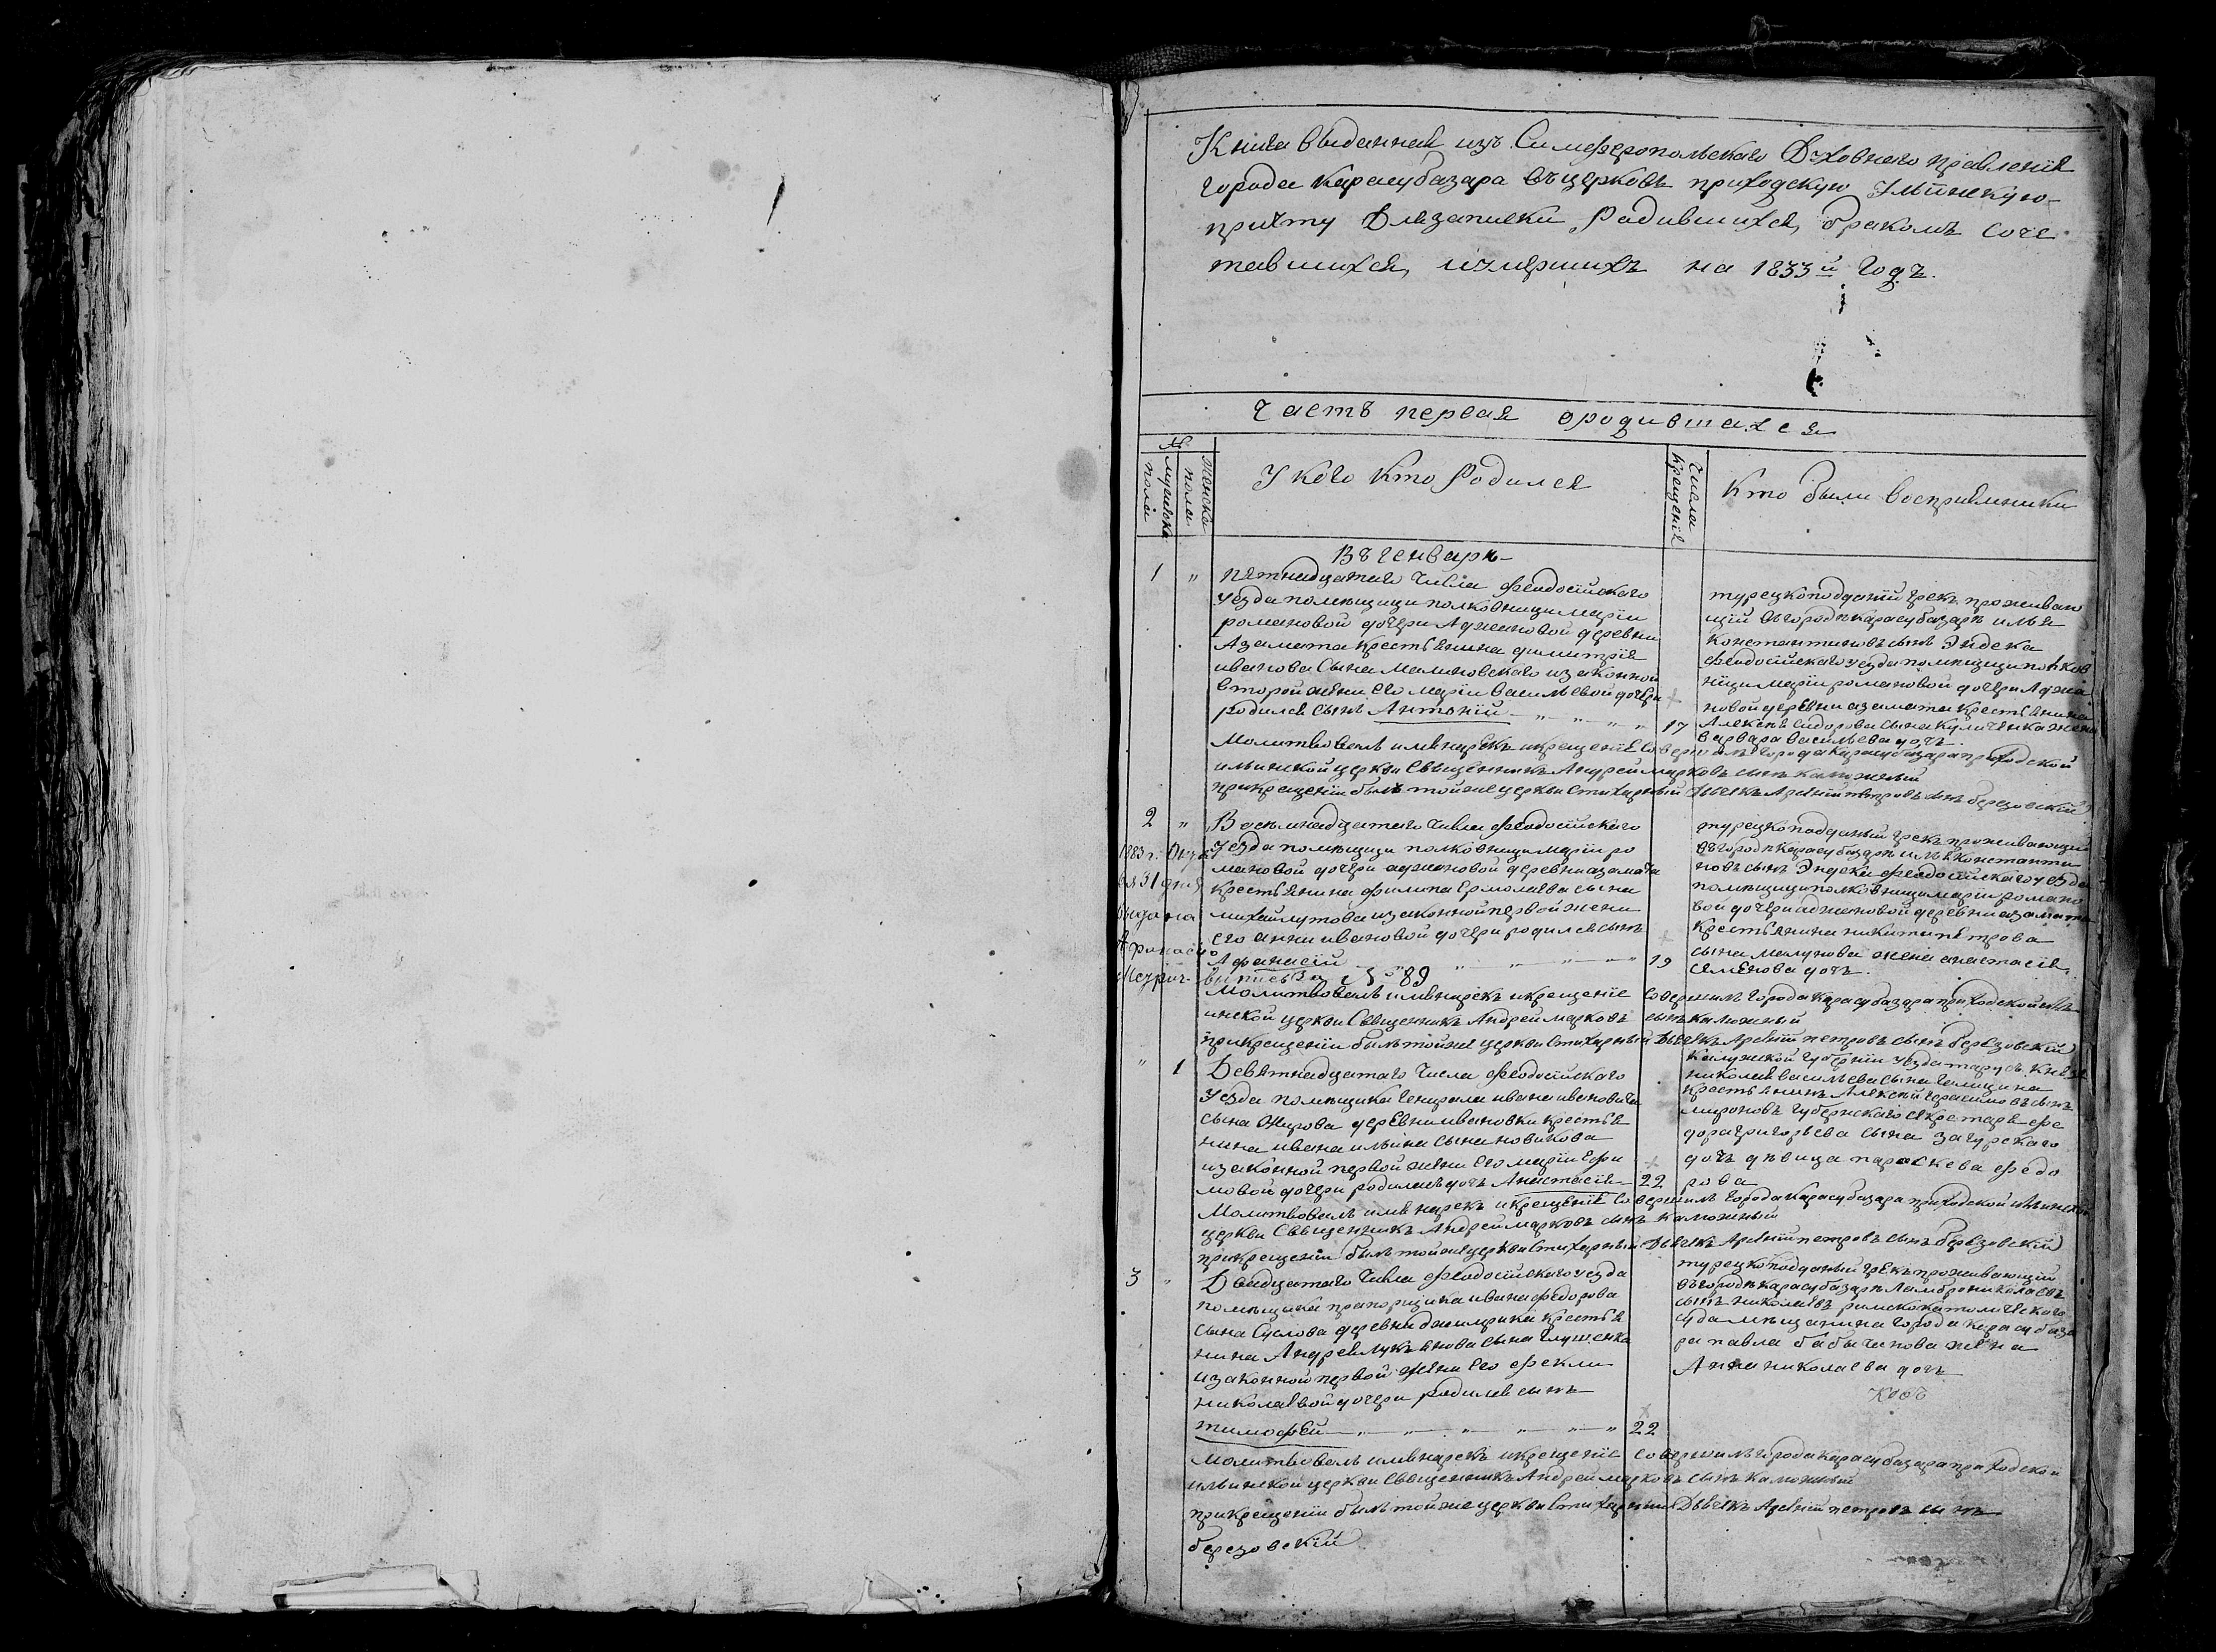 Книга выданная изъ Симферопольскаго Духовнаго правленія
города Карасубазара въ церковь приходскую Ильинскую
причту для записки родившихся, бракомъ соче
тавшихся, и умершихъ на 1833й годъ.
Часть первая о родившихся
№
мужеска пола
женска пола
У кого кто родился
Числа крещенія
Кто были восприемники
Въ генваре
1 "
пятнадцатаго числа феодосійскаго
уезда помещицы полковницы маріи
романовой дочери Аджановой деревни
Азамата крестьянина димитрія
иванова сына малиновскаго из законной
второй жены его маріи васильевой дочери
родился сынъ Антоній " " " "
17
турецкоподданый грекъ проживаю
щій въ городе карасубазаре илья
константиновъ сынъ Эндека
феодосійскаго уезда помещицы полков
ницы маріи романовой дочери Аджа
новой деревни азамата крестьянина
Алексея сидорова сына куличенка жена
варвара васильева дочь.
Молитвовалъ имя нарекъ и крещеніе совершилъ города карасубазара приходской
ильинской церкви священникъ Андрей марковъ сынъ калюжный
при крещеніи былъ той же церкви стихарный дьячекъ Арсеній петровъ сынъ березовскій
2 "
Восемнадцатаго числа феодосійскаго
уезда помещицы полковницы маріи ро
мановой дочери аджановой деревни азамата
крестьянина филипа Ермолаева сына
михайлутова из законной первой жены
его анны ивановой дочери родился сынъ
Афанасій " " " "
19
1883 г. Октяб
ря 31 дня
выдана
Афанасію
выпись за № 89
турецкоподданый грекъ проживающій
въ городе карасубазаре илья константи
новъ сынъ Эндека феодосійскаго уезда
помещицы полковницы маріи романо
вой дочери аджановой деревни азамата
крестьянина никиты петрова
сына малунова жена анастасія
семенова дочь.
Молитвовалъ имя нарекъ и крещеніе совершилъ города карасубазара приходской иль
инской церкви священникъ Андрей марковъ сынъ калюжный
при крещеніи былъ той же церкви стихарный дьячекъ Арсеній петровъ сынъ березовскій
" 1
Девятнадцатаго числа феодосійскаго
уезда помещика генерала ивана ивановича
сына Жирова деревни ивановки крестья
нина ивана ильина сына новикова
из законной первой жены его маріи Ефи
мовой дочери родилась дочь Анастасія
22
калужской губерніи уезда тарусы князя
николая васильева сына галицина
крестьянинъ Алексей герасимовъ сынъ
мироновъ губернскаго секретаря фе
дора григорьева сына загурскаго
дочь девица параскева федо
рова
Молитвовалъ имя нарекъ и крещеніе совершилъ города карасубазара приходской ильинской
церкви священникъ Андрей марковъ сынъ калюжный
при крещеніи былъ той же церкви стихарный дьячекъ Арсеній петровъ сынъ березовскій
3 "
Двадцатаго числа феодосійскаго уезда
помещика прапорщика ивана федорова
сына суслова деревни крестья
нина Андрея лукьянова сына глушенка
из законной первой жены его феклы
николаевой дочери родился сынъ
тимофей " " " " "
22
турецкоподданый грекъ проживающій
въ городе карасубазаре Ламбро николаевъ
сынъ николаевъ римскокатолическаго
суда мещанина города карасубаза
ра павла бабычанова жена
Анна николаева дочь
Молитвовалъ имя нарекъ и крещеніе совершилъ города карасубазара приходской
ильинской церкви священникъ Андрей марковъ сынъ калюжный
при крещеніи былъ той же церкви стихарный дьячекъ Арсеній петровъ сынъ
березовскій